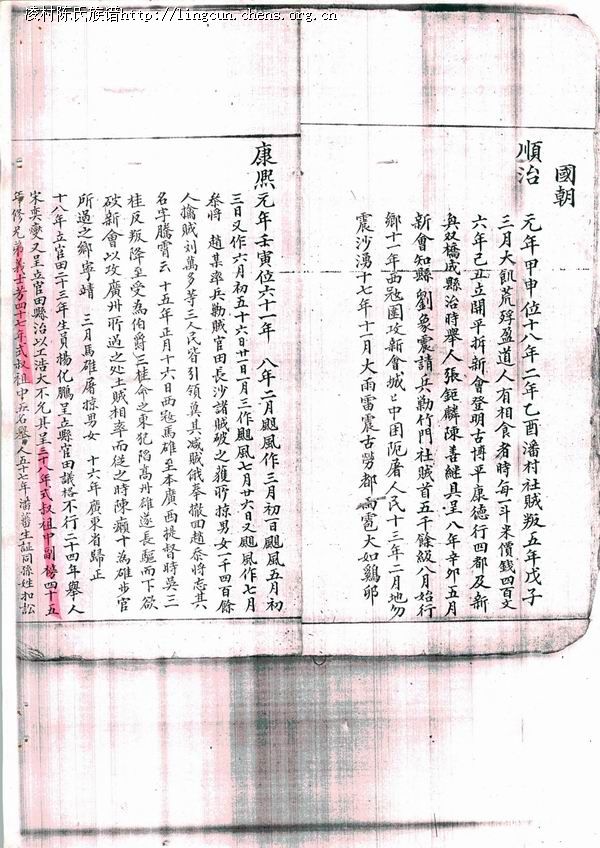 凌村陈氏族谱http://lingcun.chens.org.cn
國朝
順治
元年甲申位十八年二年乙酉潘村社賊叛五年戊子
三月大飢荒殍盈道人有相食者時每一斗米價錢四百文
六年己丑立開平拆新會登明古博平康德行四都及新
興双橋成縣治時舉人張鉅麟陳善繼具呈八年辛卯五月
新會知縣劉象震請兵勦竹門社賊首五千餘級八月始行
鄉十一年西冦圍攻新會城中困阨屠人民十三年二月地
震沙湧十七年十一月大雨雷震古勞都雨雹大如鷄卵
康熙
元年壬寅位六十一年 八年二月颶風作三月初百颶風五月初
三日又作六月初五十六廿日月三作颶風七月廿六日又颶風作七月
叅將趙某率兵勦賊官田長沙諸賊破之獲所掠男女一千四百餘
人擒賊刘萬多等三人民皆引領奠其减賊俄奉撤回趙叅將志其
名字騰霄云 十五年正月十六日西冦馬雄至本廣西提督時吳三
桂反叛降至受為伯爵三桂命之東犯陷高州雄遂長驅而下欲
破新會以攻廣州所過之处土賊相率而從之時陳獺十為雄步官
所過之鄉寧靖 三月馬雄屠掠男女 十六年廣東省歸正
十八年立官田二十三年生員楊化鵬呈立縣官田議格不行二十四年舉人
宋奕燮又呈立官田縣治以工浩大不允其呈三十八年式叔祖中副榜四十五
年修兄弟義士芳四十七年式叔祖中名舉人五十七年潘畨生証同孫姓扣訟